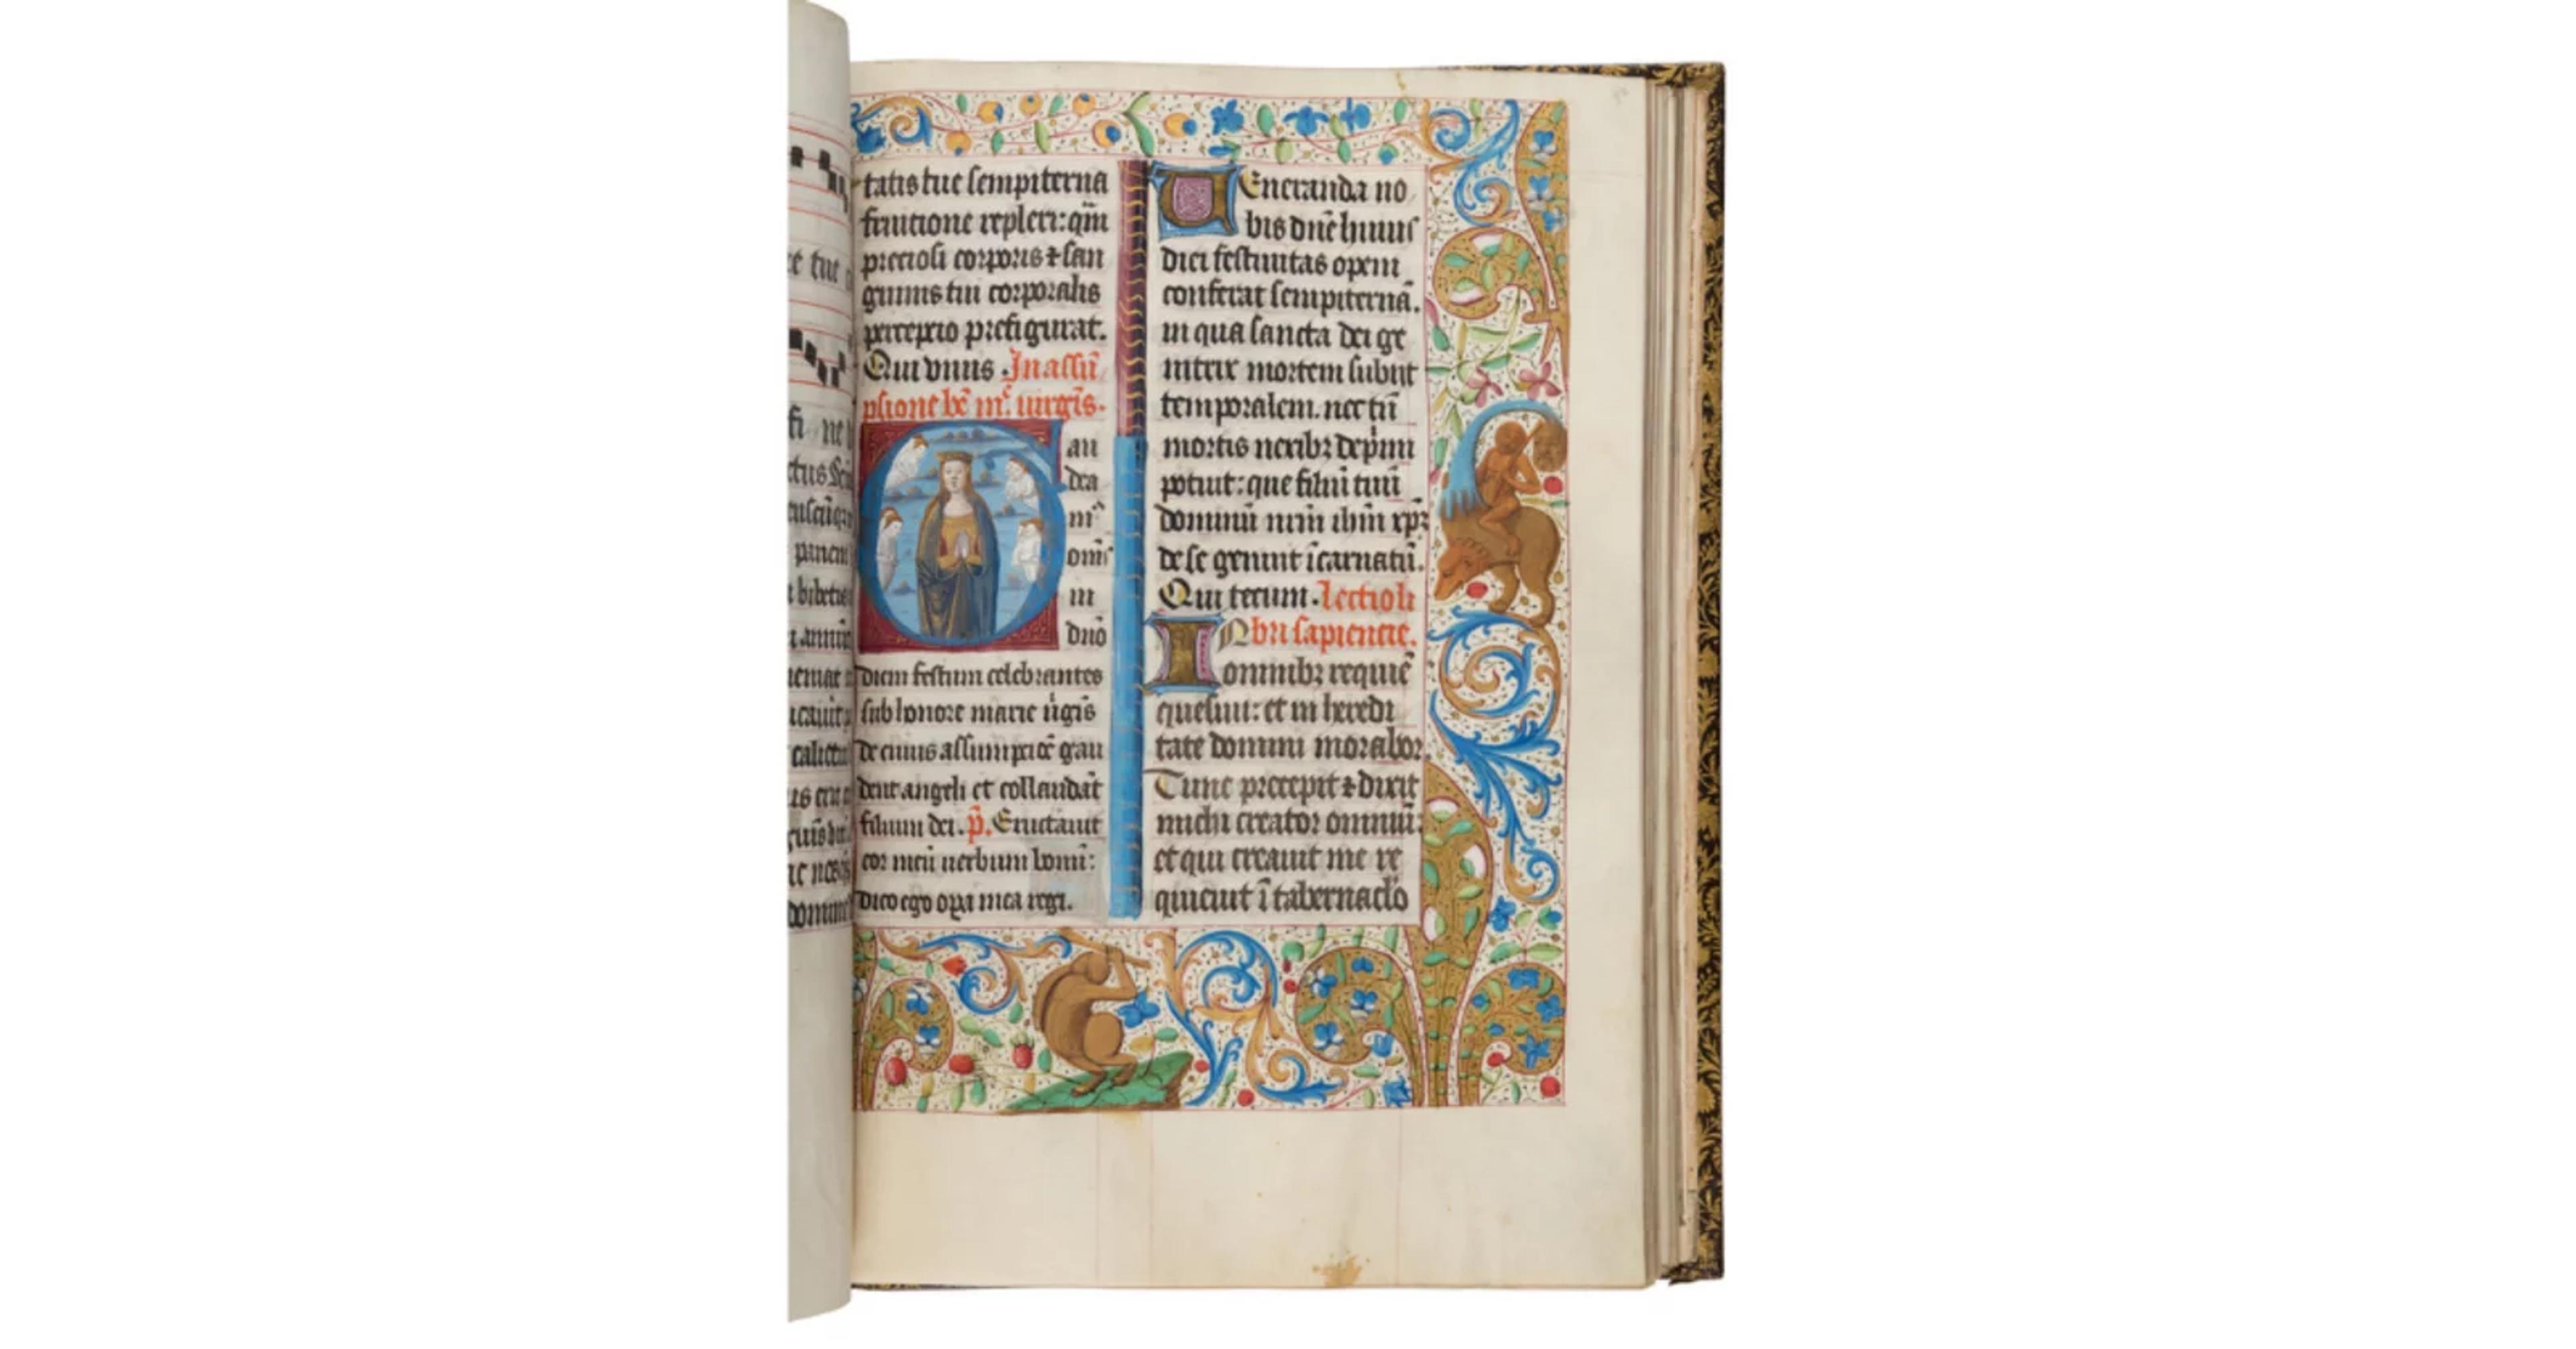 et tue
fi ne
panem
bibetis
domine
tatis tue sempiterna
fruitione repleri: qm̄
preciosi corporis ⁊ san
guinis tui corporalis
perceptio prefigurat.
Qui viuis. In assū
psione bē m͑. uirgīs.
Gau
dea
mꝰ
om̄s
in
dn̄o
diem festum celebrantes
sub honore marie ūgīs
de cuius assumpciōe gau
dent angeli et collaudāt
filium dei. p̄. Eructauit
cor meū uerbum bonū:
dico ego opa mea regi.
Ueneranda no
bis dn̄e huius
diei festiuitas opem
conferat sempiternā.
in qua sancta dei ge
nitrix mortem subiit
temporalem. nec tn̄
mortis nexibꝫ dep̄mi
potuit: que filiū tuū
dominū nr̄m ihm̄ xpꝫ
de se genuit īcarnatū.
Qui tecum. Lectio li
bri sapiencie.
IN omnibꝫ requiē
quesiui: et in heredi
tate domini morabor.
Tunc precepit ⁊ dixit
michi creator omniū:
et qui creauit me re
quieuit ī tabernaclo